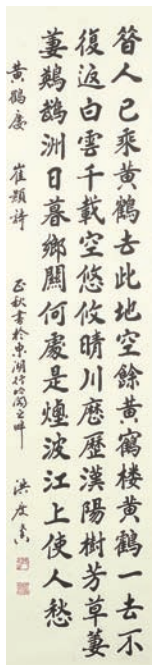 昝人已乘黃鶴去此地空餘黃鶴楼黃鶴一去不
復返白雲千載空悠攸晴川歷歷漢陽樹芳草萋
萋鸚鵡洲日暮鄉關何處是煙波江上使人愁
黃鶴廔 崔顥詩 正秋書於東湖行吟閣之畔 洪